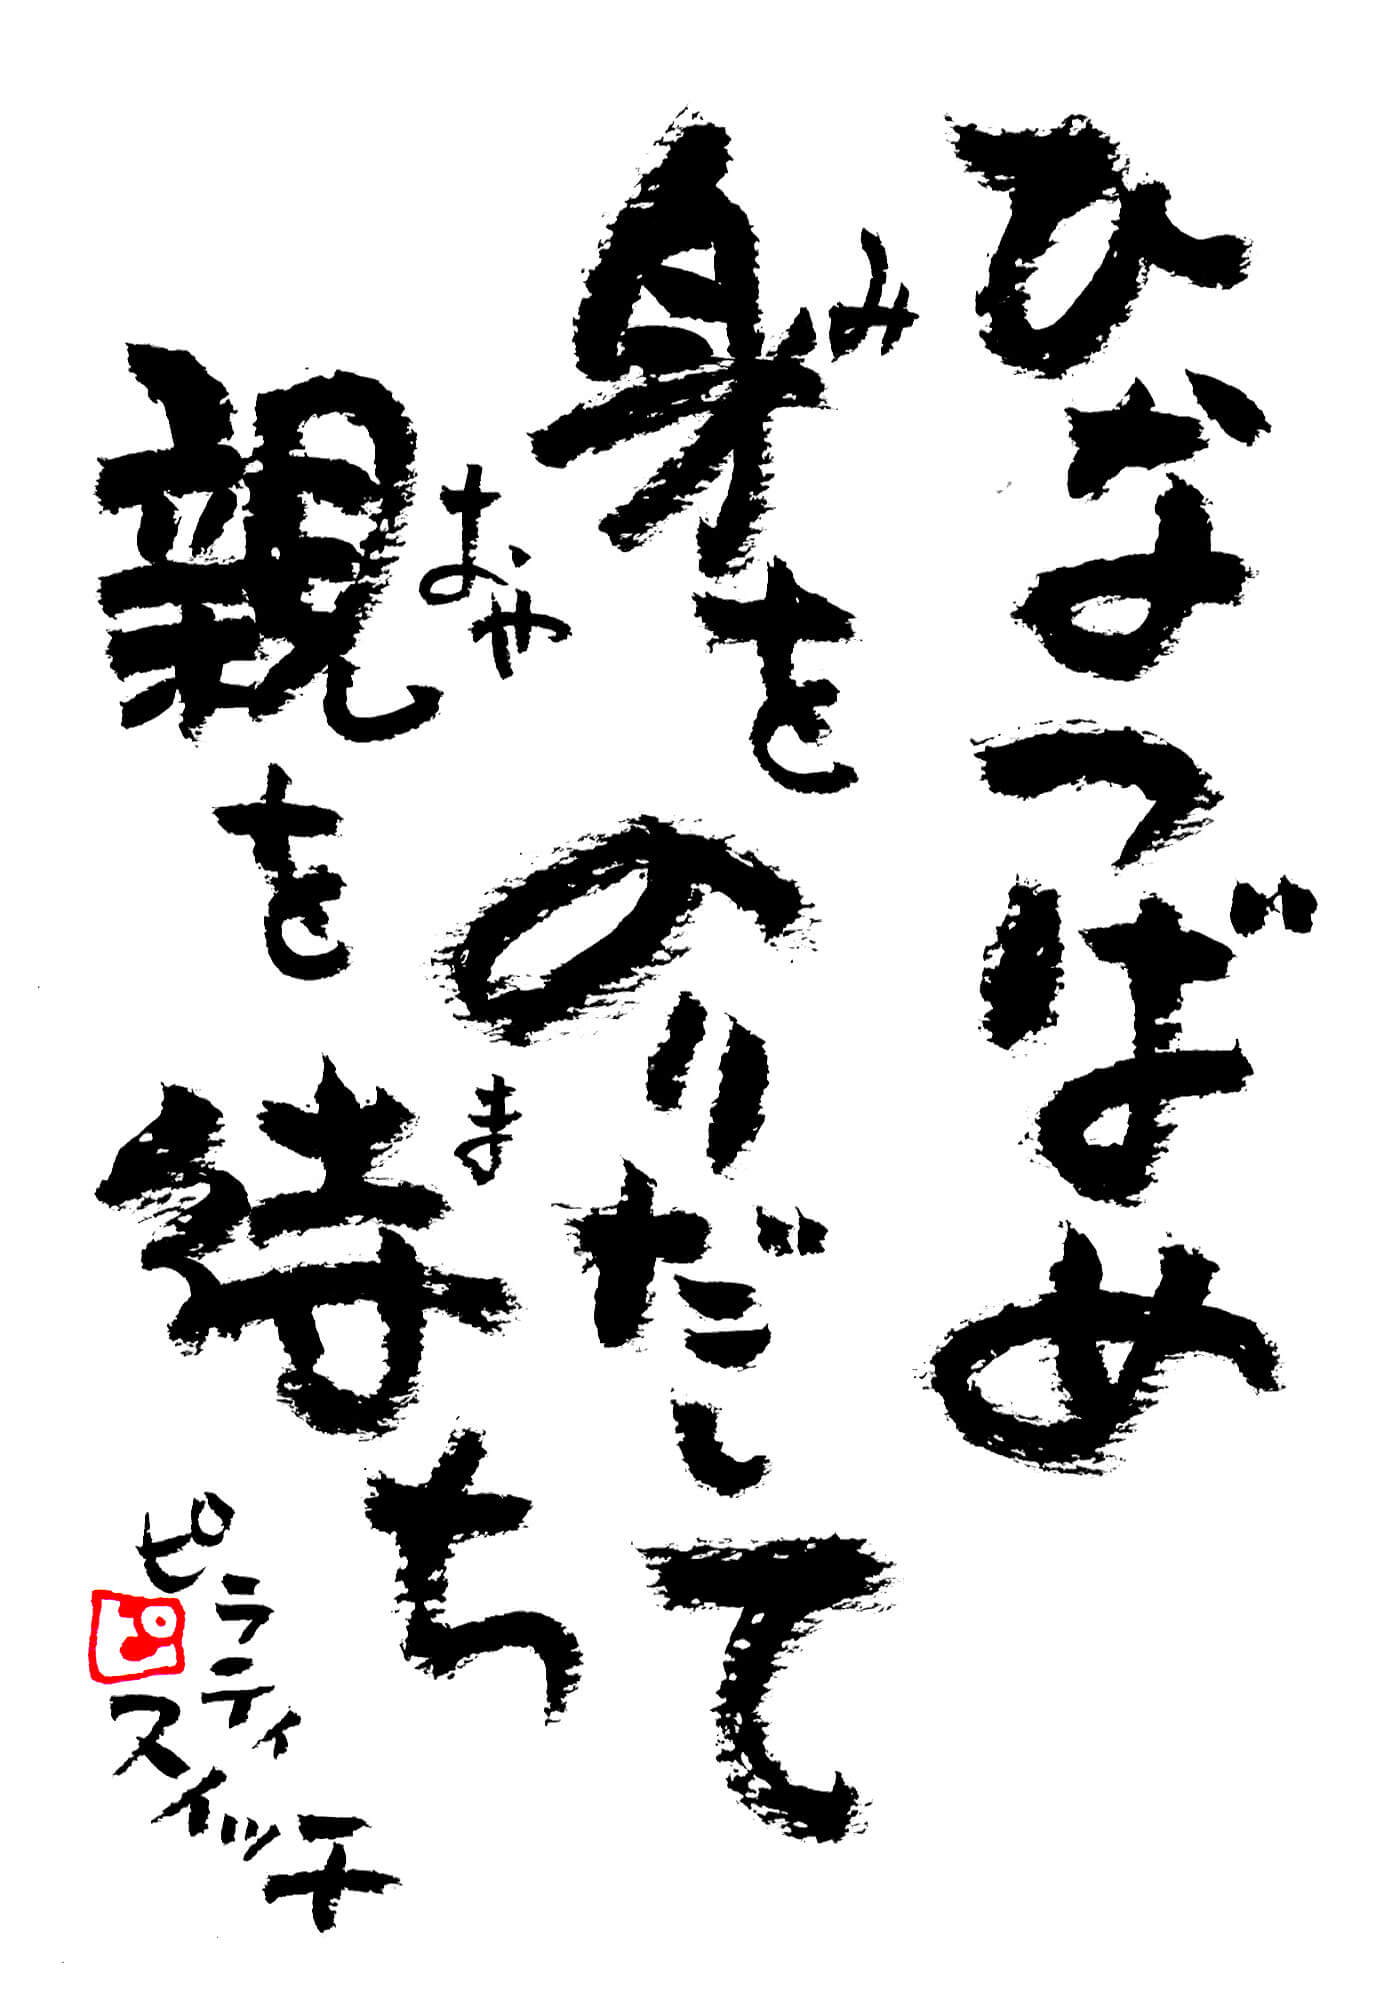 ひなつばめ
身をのりだして
み
親を待ち
おや
ま
ピラティ
スイッチ
ピ